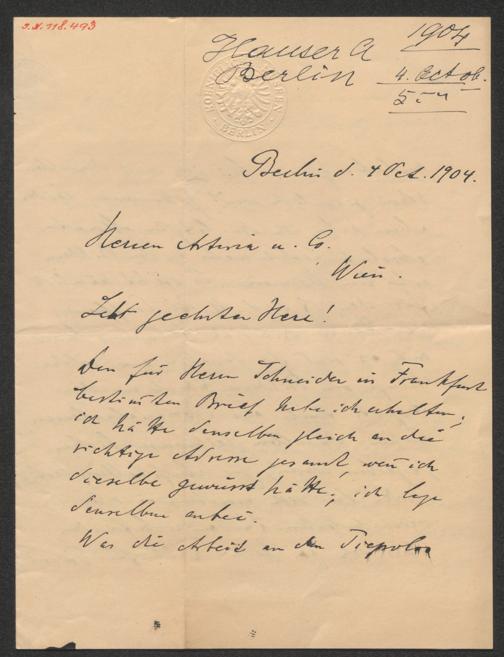 I.N. 118.493
Hauser A
Berlin
1904
4. Octob.
Berlin d. 4 Oct. 1904.
Herren Artaria u. Co.
Wien.
Sehr geehrter Herr!
Den für Herrn Schneider in Frankfurt
bestim̄ten Brief habe ich erhalten,
ich hätte denselben gleich an die
richtige Adresse gesandt, wen̄ ich
dieselbe gewusst hätte; ich lege
denselben anbei.
Was die Arbeit an den Tiepolo